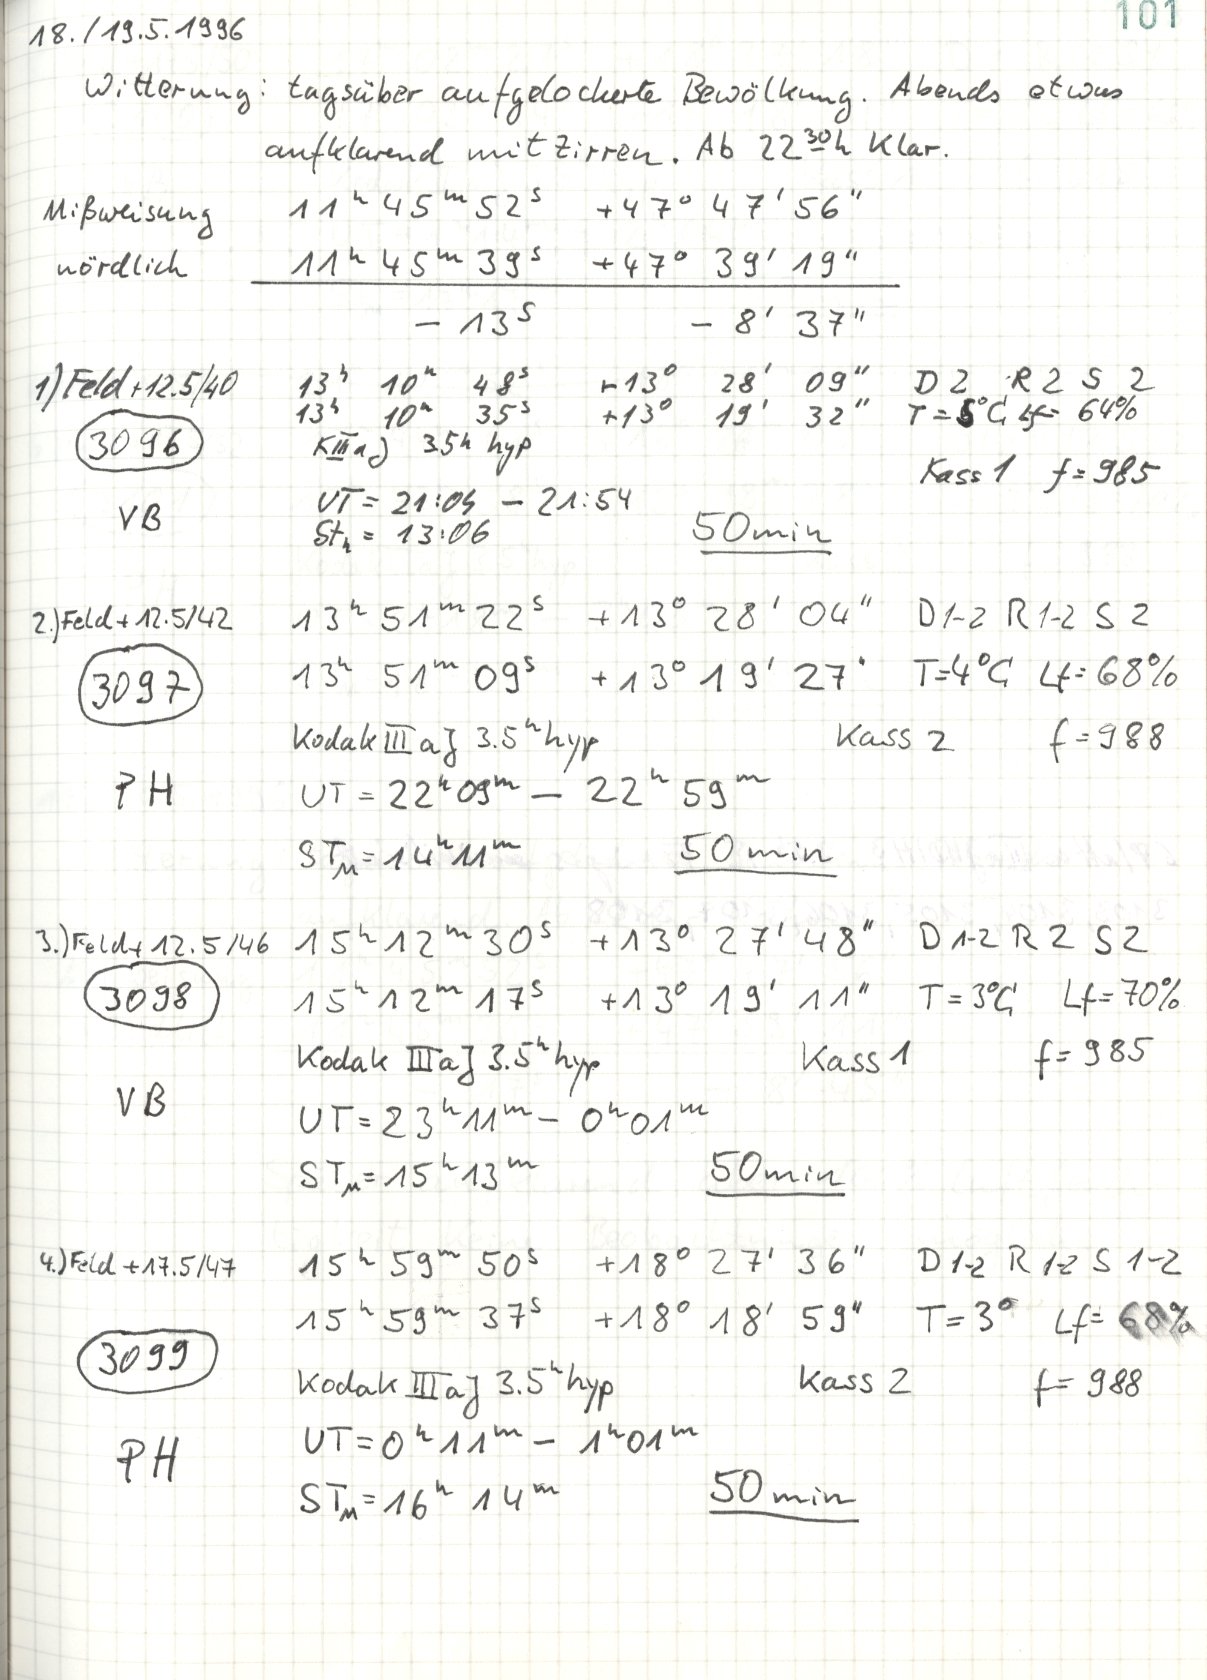 101
18./19.5.1996
Witterung: tagsüber aufgelockerte Bewölkung. Abends etwas
aufklarend mit Zirren. Ab 22 30 h Klar.
Mißweisung 11h 45m 52s +47° 47' 56"
nördlich 11h 45m 39s +47° 39' 19"
- 13s - 8' 37"
1) Feld +12.5/40 13h 10m 48s +13° 28' 09" D 2 R 2 S 2
13h 10m 35s +13° 19' 32" T = 5°C Lf = 64%
3096 KIIIaJ 3.5h hyp
Kass 1 f = 985
VB UT = 21:04 - 21:54
Stm = 13:06 50min
2.) Feld +12.5/42 13h 51m 22s +13° 28' 04" D 1-2 R 1-2 S 2
3097 13h 51m 09s +13° 19' 27" T=4°C Lf=68%
Kodak IIIaJ 3.5h hyp Kass 2 f=988
PH UT = 22h 09m - 22h 59m
STM = 14h 11m 50min
3.) Feld + 12.5/46 15h 12m 30s +13° 27' 48" D 1-2 R 2 S 2
3098 15h 12m 17s +13° 19' 11" T = 3°C Lf = 70%
Kodak IIIaJ 3.5h hyp Kass 1 f = 985
VB UT = 23h 11m - 0h 01m
STM = 15h 13m 50min
4.) Feld +17.5/47 15h 59m 50s +18° 27' 36" D 1-2 R 1-2 S 1-2
15h 59m 37s +18° 18' 59" T = 3° Lf = 68%
3099 Kodak IIIaJ 3.5h hyp Kass 2 f = 988
PH UT = 0h 11m - 1h 01m
STM = 16h 14m 50min